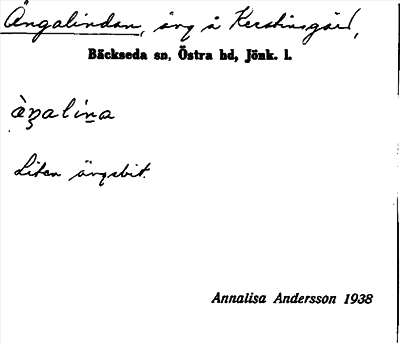 Ängalindan, äng å Kerstinsgård,
Bäckseda sn, Östra hd, Jönk. l.
Liten ängsbit.
Annalisa Andersson 1938